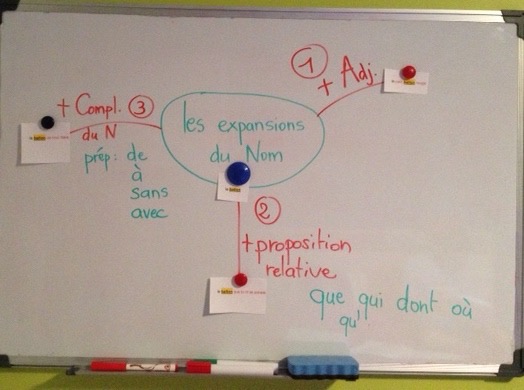 les expansions
du Nom
① + Adj.
②
+ proposition
relative
que qui dont où
qu'
+ Compl. ③
du N
prép: de
à
sans
avec